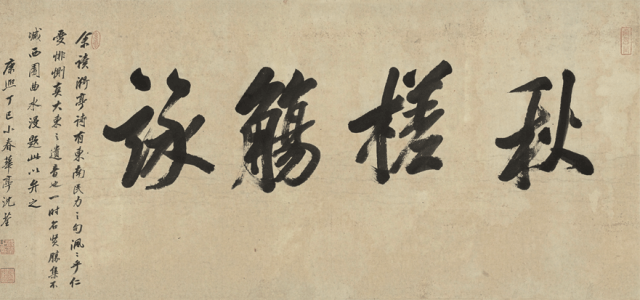 秋槎觴詠
余讀漸亭詩有東南民力之句渢渢乎仁
愛悱惻真大東之遺音也一時名贤勝集不
減西園曲水漫題此以弁之
康熙丁巳小春華亭沈荃